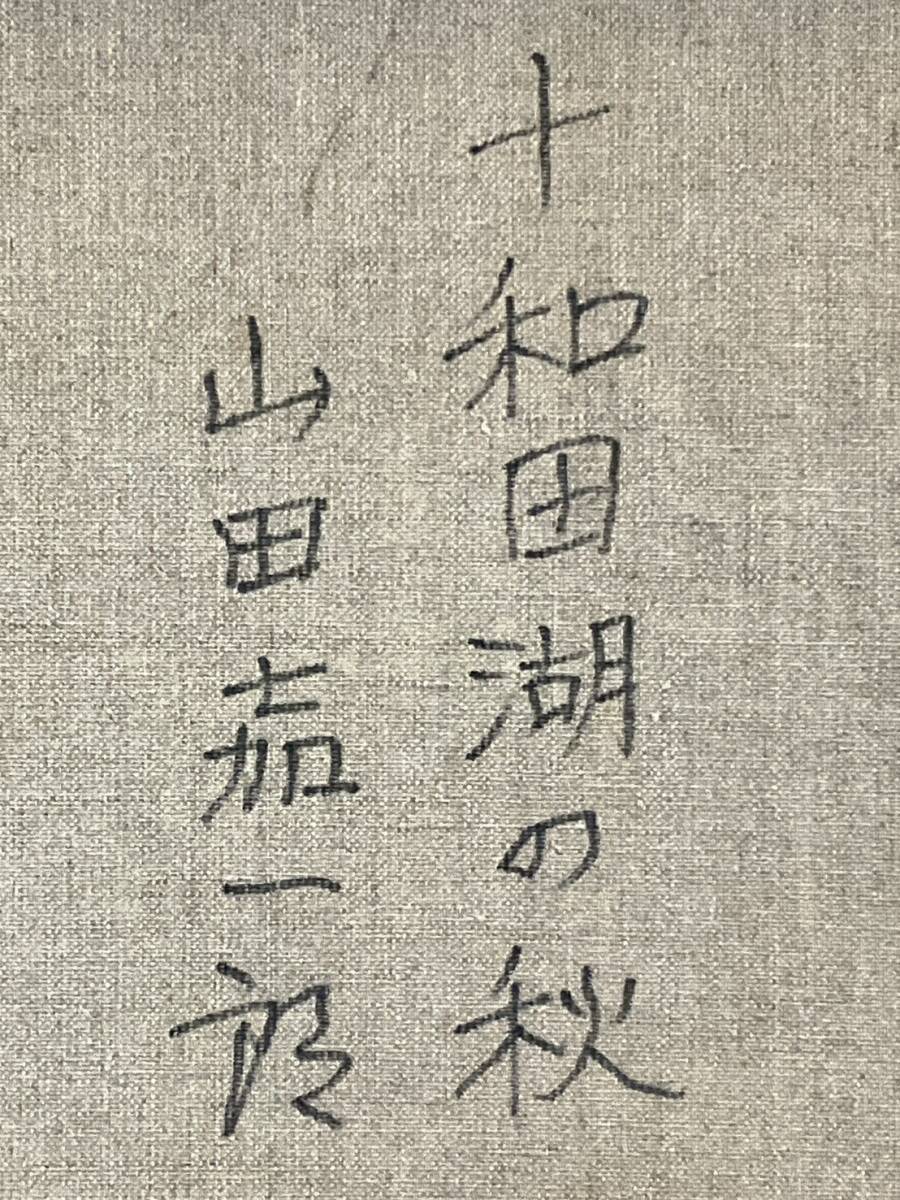 十和田湖の秋
山田嘉一郎